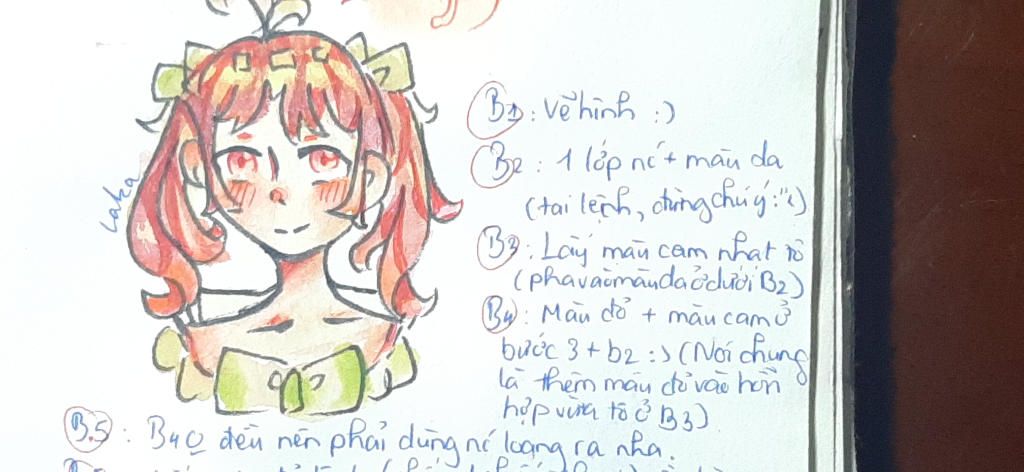 Laka
B1: Vẽ hình :)
B2: 1 lớp nc + màu da
(tai lệch, đừng chú ý :"))
B3: Lấy màu cam nhạt tô
(pha vào màu da ở dưới B2)
B4: Màu đỏ + màu cam ở
bước 3 + b2 :> (Nói chung
là thêm màu đỏ vào hỗn
hợp vừa tô ở B3)
B.5: B4 0 đều nên phải dùng nc loang ra nha.